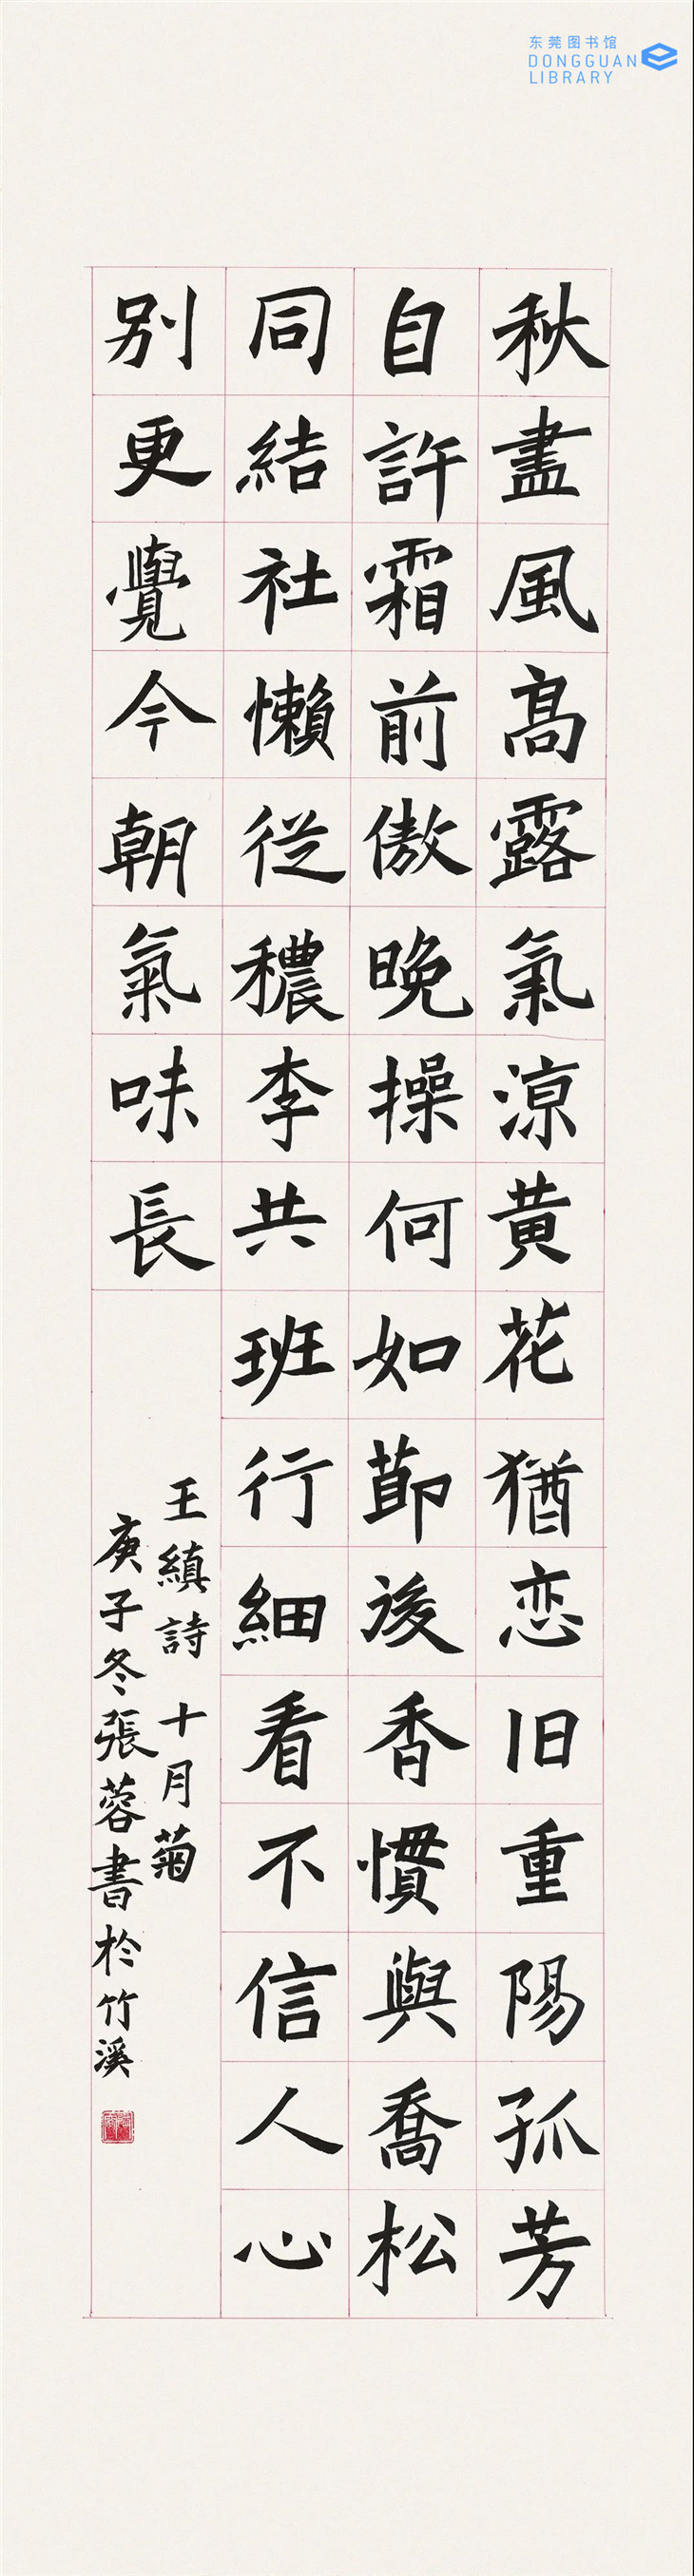 东莞图书馆
DONGGUAN
LIBRARY
秋盡風高露氣涼黄花猶恋旧重陽孤芳
自許霜前傲晚操何如莭後香慣與喬松
同結社懶從穠李共班行細看不信人心
别更覺今朝氣味長
王縝詩 十月菊
庚子冬張蓉書於竹溪